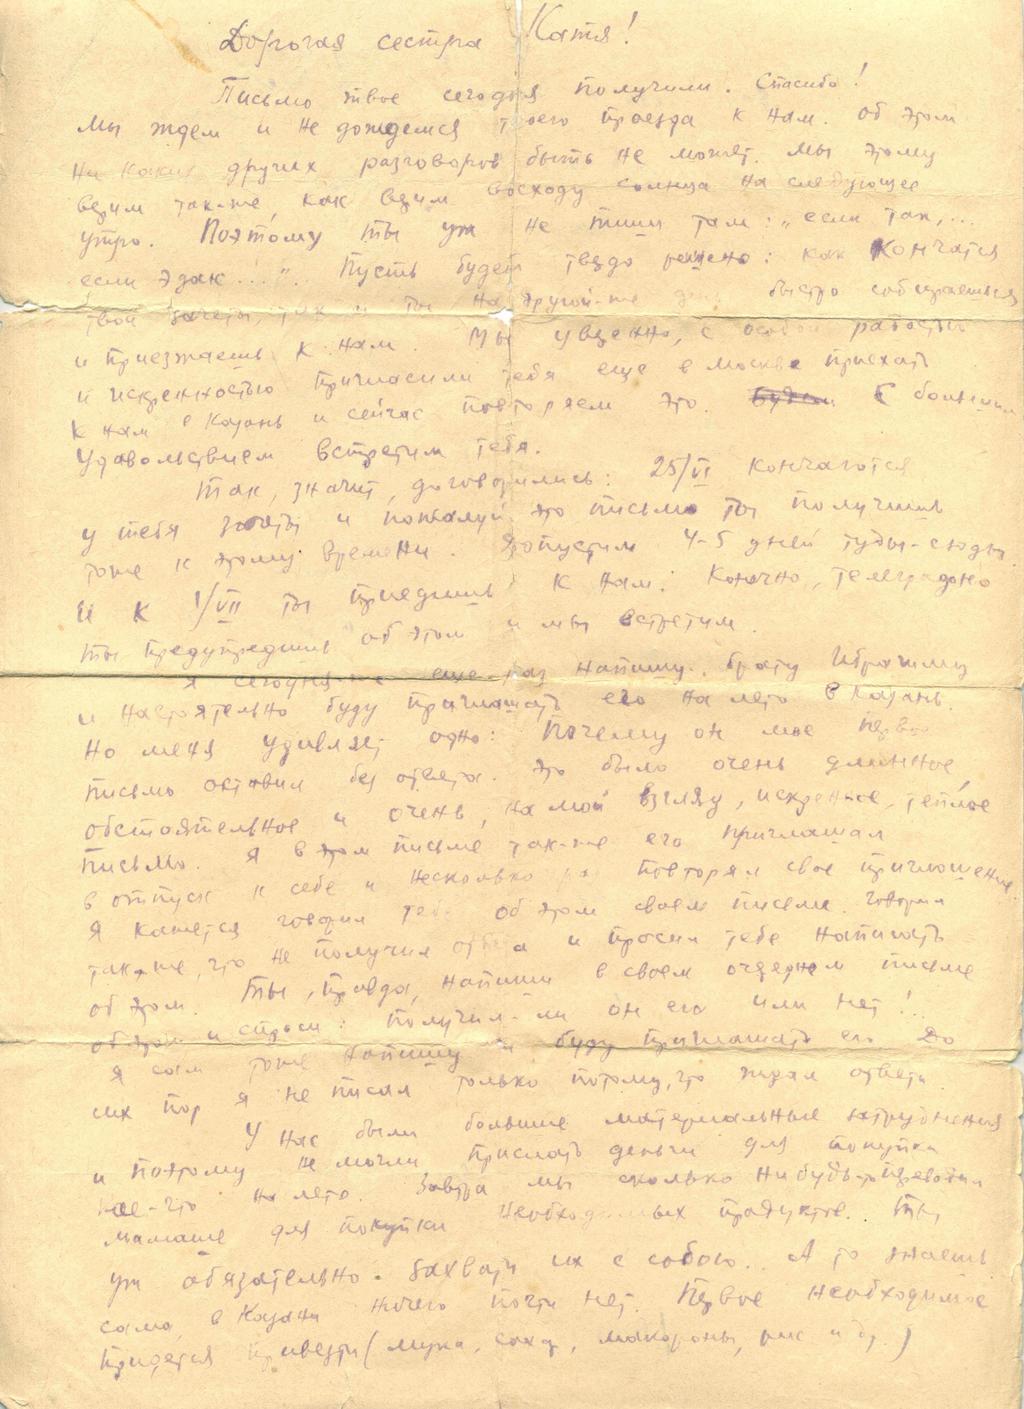 Дорогая сестра Катя!
Письмо твое сегодня получили. Спасибо!
Мы ждем и не дождемся твоего приезда к нам. Об этом
ни каких других разговоров быть не может. Мы этому
верим так-же, как верим восходу солнца на следующее
утро. Поэтому ты уж не пиши там: „если так,..
если эдак...“. Пусть будет твердо решено: как кончатся
твои зачеты, так и ты на другой-же день быстро собираешься
и приезжаешь к нам. Мы уверенно, с особой радостью
и искренностью пригласили тебя еще в Москве приехать
к нам в Казань и сейчас повторяем это. С большим
удовольствием встретим тебя.
Так, значит, договорились: 25/VI кончаются
у тебя зачеты и пожалуй это письмо ты получишь
тоже к этому времени. Допустим 4-5 дней туды-сюды
и к 1/VII ты приедешь к нам. Конечно, телеграфно
ты предупредишь об этом и мы встретим.
Я сегодня-же еще раз напишу брату Ибрагиму
и настоятельно буду приглашать его на лето в Казань.
Но меня удивляет одно: почему он мое первое
письмо оставил без ответа. Это было очень длинное,
обстоятельное и очень, на мой взгляд, искреннее, теплое
письмо. Я в этом письме так-же его приглашал
в отпуск к себе и несколько раз повторял свое приглашение.
Я кажется говорил тебе об этом своем письме. Говорил
так-же, что не получил ответа и просил тебе написать
об этом. Ты, правда, напиши в своем очередном письме
об этом и спроси: получил-ли он его или нет!
Я сам тоже напишу и буду приглашать его. До
сих пор я не писал только потому, что ждал ответа.
У нас были большие материальные затруднения
и поэтому не могли прислать деньги для покупки
кое-что на лето. Завтра мы сколько нибудь переводим
мамаше для покупки необходимых продуктов. Ты,
уж обязательно захвати их с собою. А то знаешь
сама, в Казани ничего почти нет. Первое необходимое
придется привезти (мука, сахар, макароны, рис и др.)